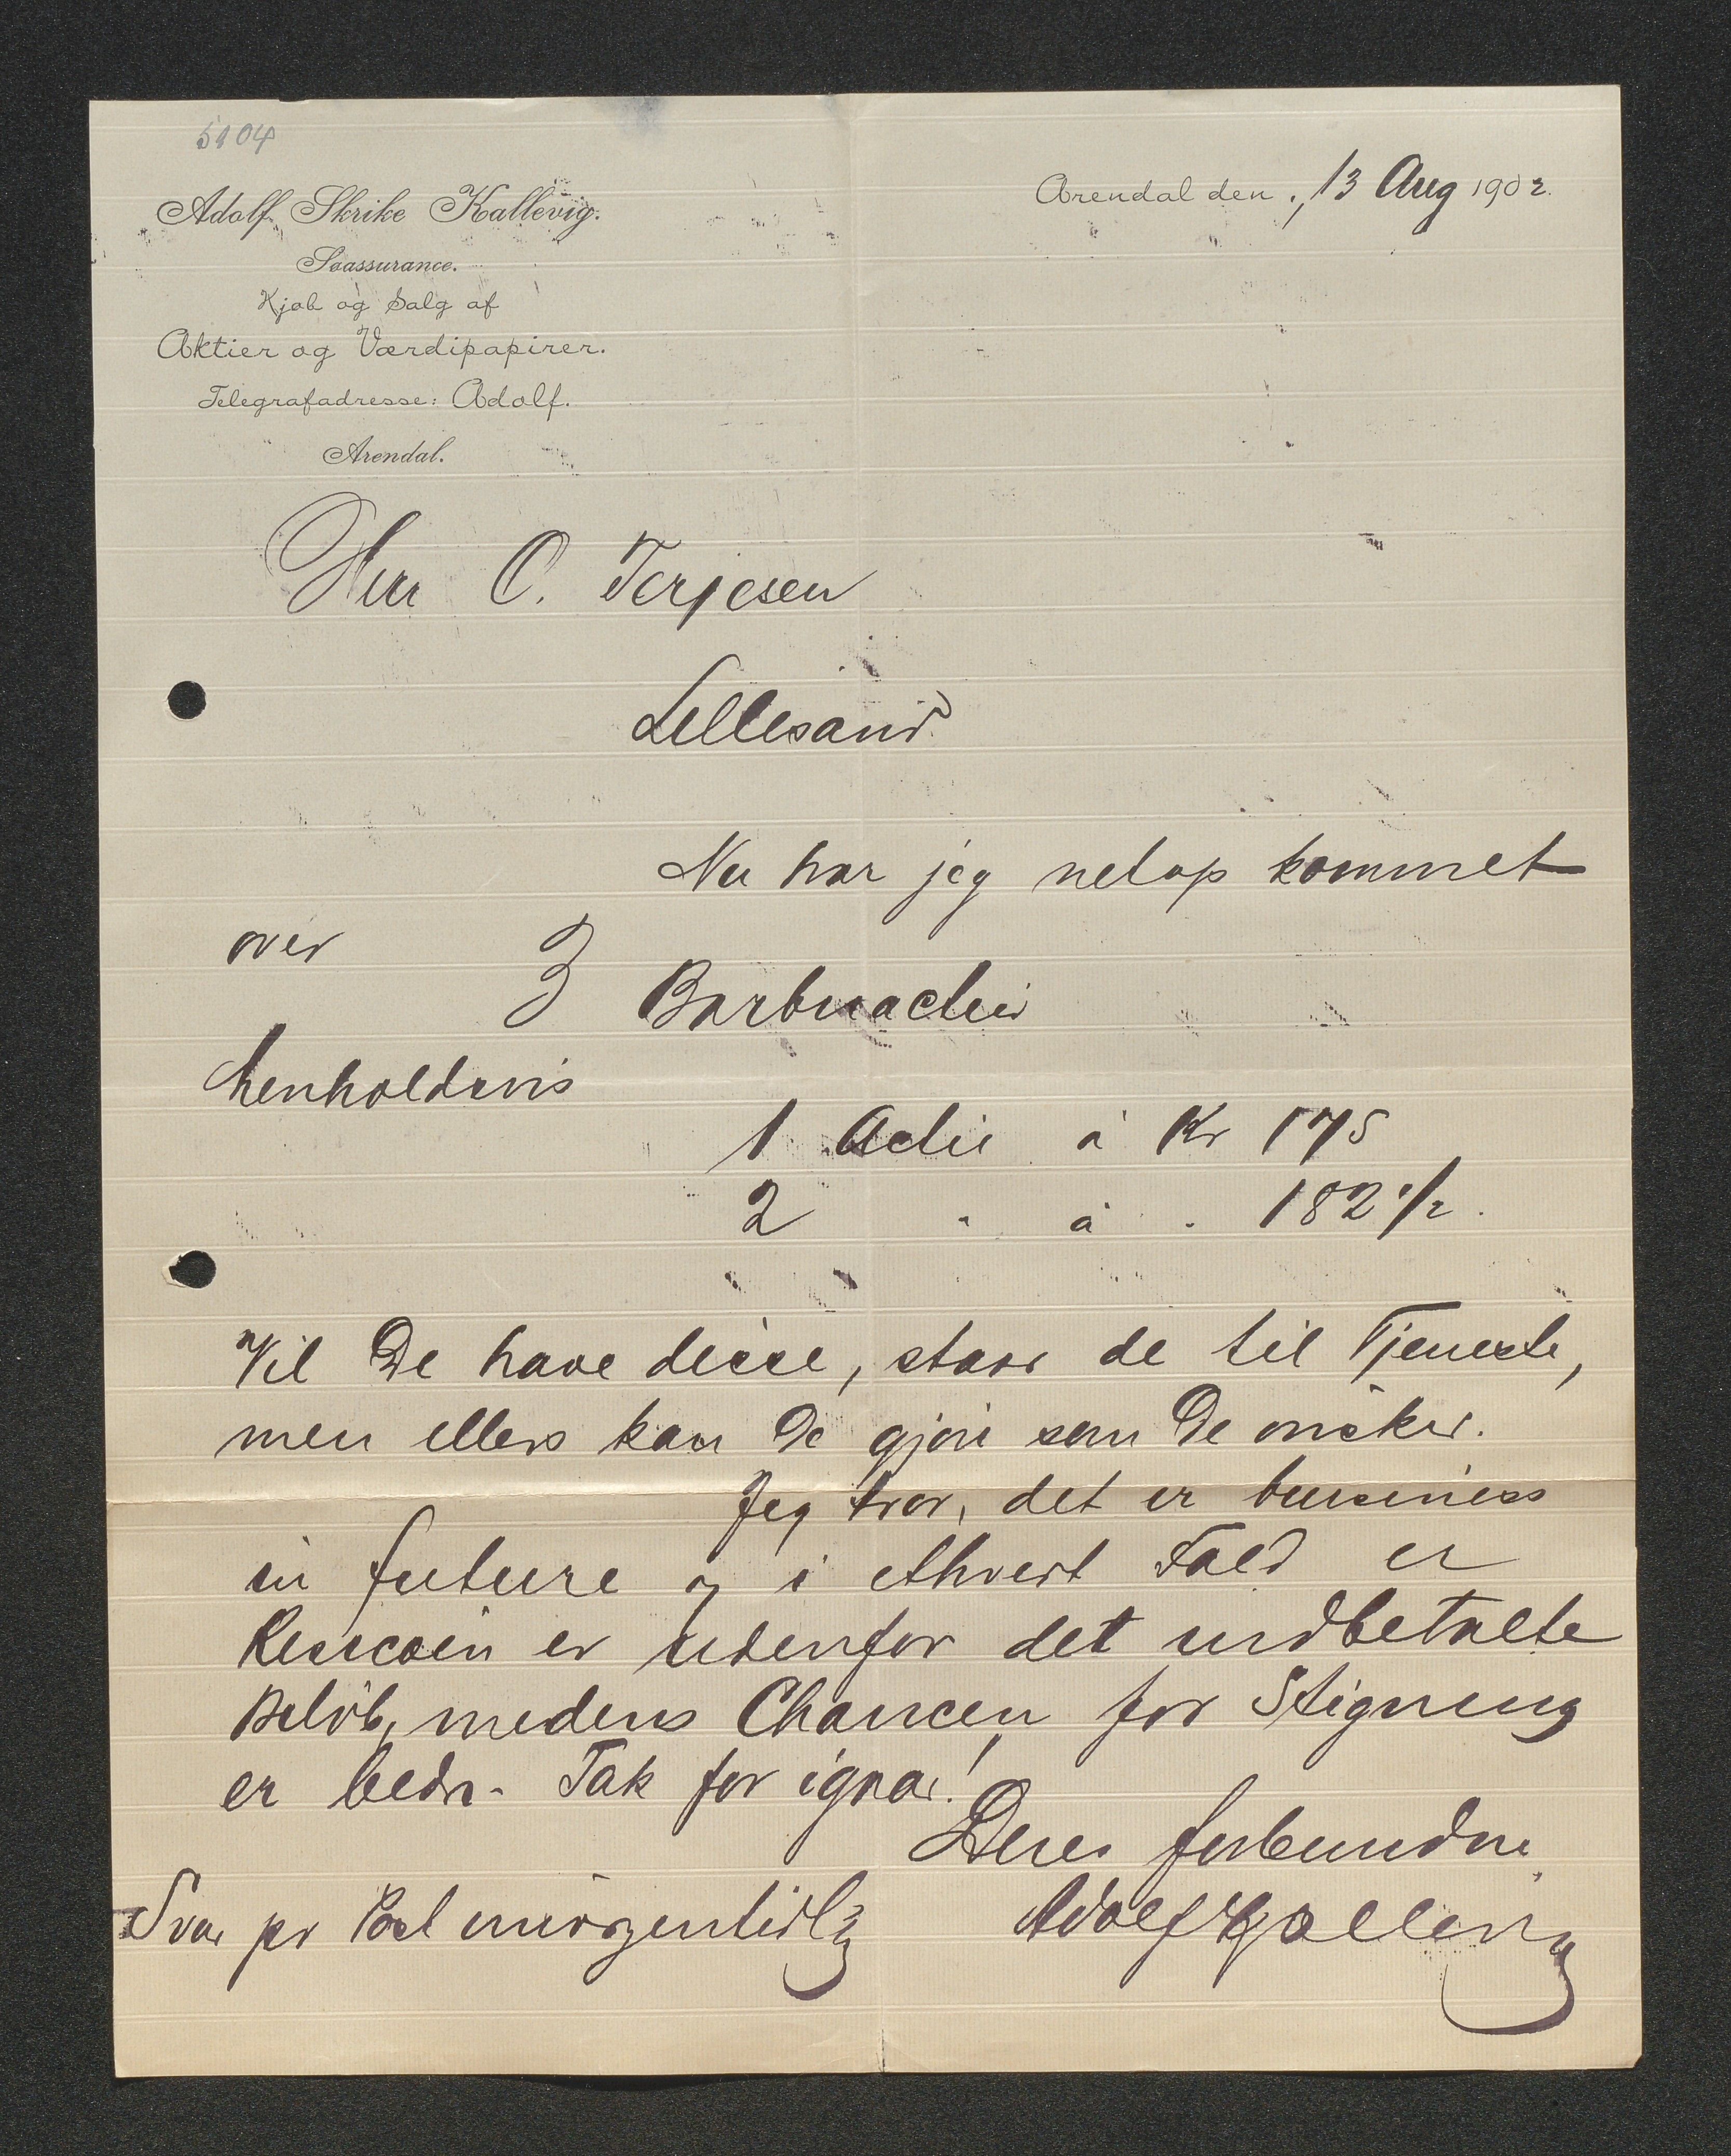 5104
Adolf Skrike Kallevig.
Søassurance.
Kjøb og Salg af
Aktier og Værdipapirer.
Telegrafadresse: Adolf.
Arendal.
Arendal den, 13 Aug 1902.
Herr O. Terjesen
Lillesand
Nu har jeg netop kommet
over 3 Barbuactier
henholdsvis
1 Actie à Kr 175
2 " à " 182 1/2.
Vil De have disse, staar de til Tjeneste,
men ellers kan De gjøre som De ønsker.
Jeg tror, det er bussiness
in future og i ethvert Fald er
er udenfor det indbetalte
Beløb, medens Chancen for Stigning
er bedre. Tak for igaar!
Deres forbundne
Adolf Kallevig
Svar pr Post imorgentidlig